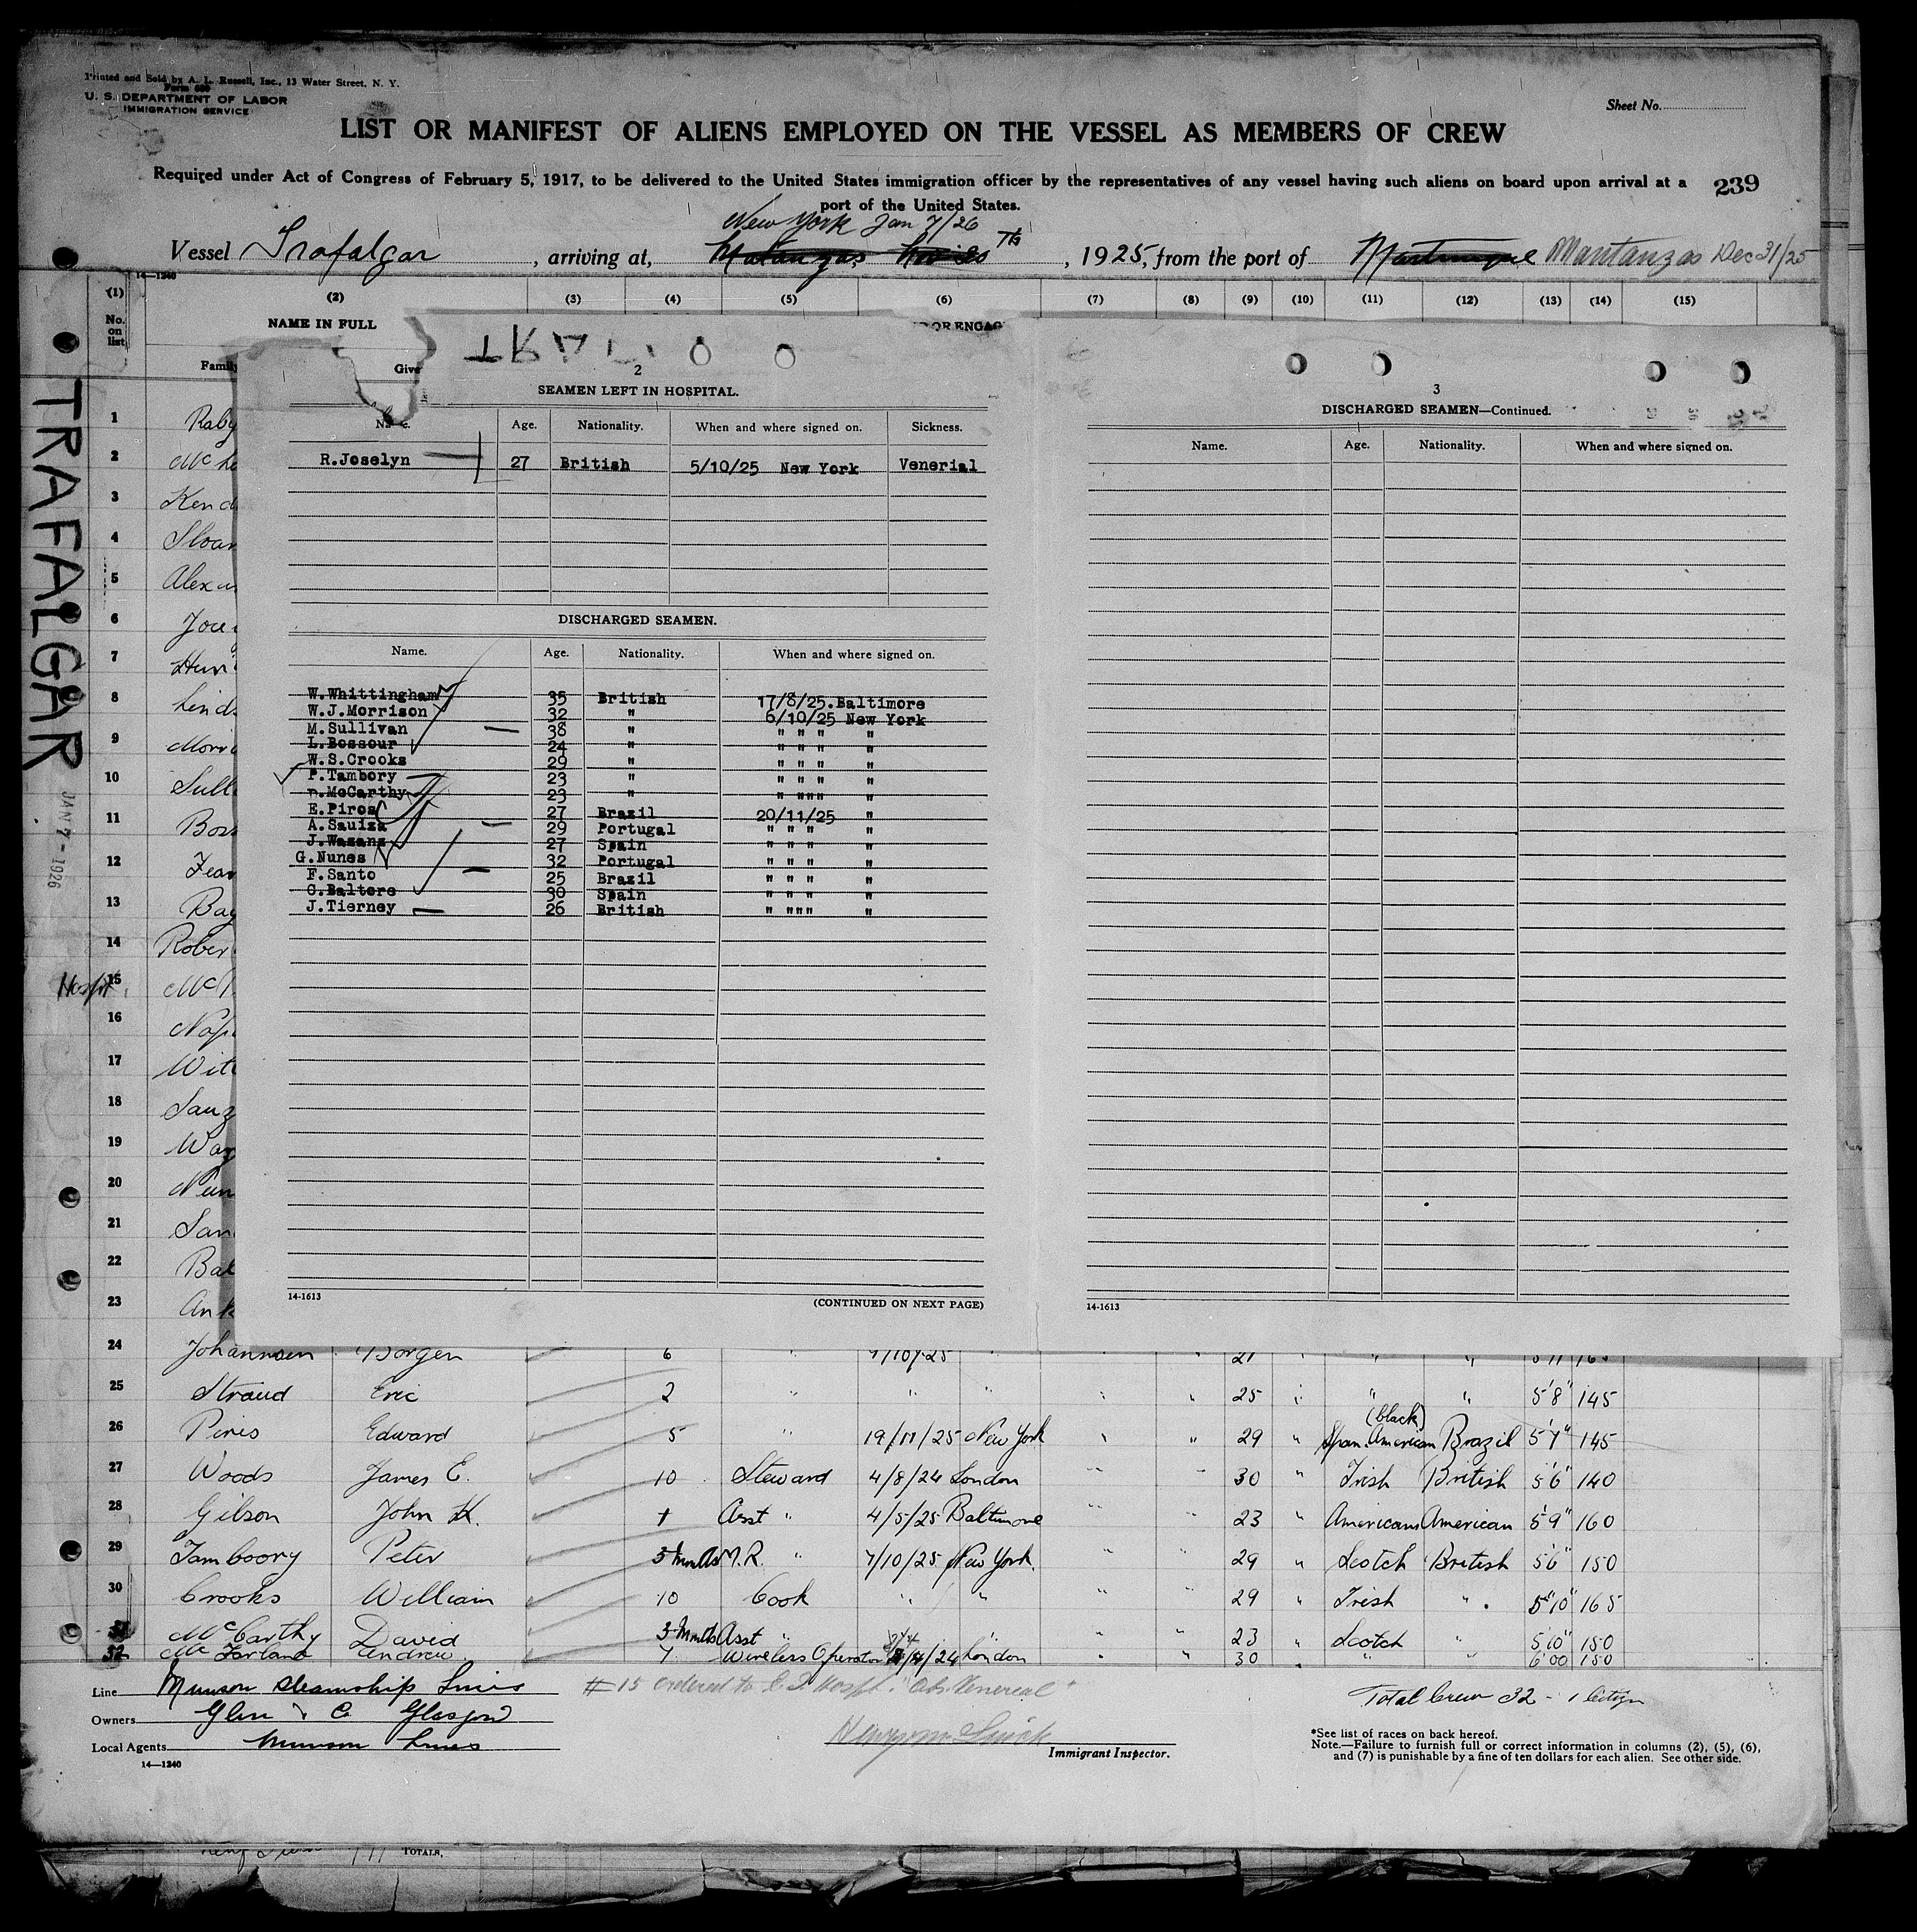 Printed and Sold by A. L. Russell, Inc., 13 Water Street, N. Y.
Form 680
U. S. DEPARTMENT OF LABOR
IMMIGRATION SERVICE
Sheet No.
LIST OR MANIFEST OF ALIENS EMPLOYED ON THE VESSEL AS MEMBERS OF CREW
Required under Act of Congress of February 5, 1917, to be delivered to the United States immigration officer by the representatives of any vessel having such aliens on board upon arrival at a
port of the United States.
239
New York Jan 7/26
Vessel Trafalgar, arriving at, Matanzas Th, 1925, from the port of Martinique Mantanzas Dec 31/25
14—1240
(1) (2) (3) (4) (5) (6) (7) (8) (9) (10) (11) (12) (13) (14) (15)
No. on list
NAME IN FULL
OR ENGAG
Family
Give
TRAFALGAR
JAN 7 - 1926
1 Raby
2 McLe
3 Kend
4 Sloan
5 Alexan
6 Joce
7 Hun
8 Linds
9 Morri
10 Sull
11 Boss
12 Fear
13 Bay
14 Rober
Hospt 15 Mc
16 Nap
17 Witt
18 Sauz
19 Waz
20 Nun
21 San
22 Bal
23 Ank
2
SEAMEN LEFT IN HOSPITAL.
Age. Nationality. When and where signed on. Sickness.
R.Joselyn 27 British 5/10/25 New York Venerial
DISCHARGED SEAMEN.
Name. Age. Nationality. When and where signed on.
W.Whittingham 35 British 17/8/25.Baltimore
W.J.Morrison 32 " 6/10/25 New York
M.Sullivan 38 " " " " "
L.Bossour 24 " " " " "
W.S.Crooks 29 " " " " "
P.Tambory 23 " " " " "
D.McCarthy 23 " " """ "
E.Piros 27 Brazil 20/11/25 "
A.Sauiza 29 Portugal " " " "
J.Wazanz 27 Spain " " " "
G.Nunes 32 Portugal " " " "
F.Santo 25 Brazil " " " "
C.Baltere 30 Spain " " " "
J.Tierney 26 British " """ "
14-1613
(CONTINUED ON NEXT PAGE)
3
DISCHARGED SEAMEN—Continued.
Name. Age. Nationality. When and where signed on.
14-1613
24 Johannsen Borgen 6 " 7/10/25 " 21 " " " 5'11 165
25 Straud Eric 2 " " " " " 25 " " " 5'8" 145
(black)
26 Piris Edward 5 " 19/11/25 New York " " 29 " Span. American Brazil 5'7" 145
27 Woods James E. 10 Steward 4/8/24 London " " 30 " Irish British 5'6" 140
28 Gibson John H. 1 Asst " 4/5/25 Baltimore " " 23 " American American 5'9" 160
29 Tamboory Peter 5 Mnths M.R. " 7/10/25 New York. " " 29 " Scotch British 5'6" 150
30 Crooks William 10 Cook " " " " 29 " Irish " 5'10" 165
31 McCarthy David 3 Mnths Asst " " " " 23 " Scotch " 5'10" 150
32 McFarland Andrew 7 Wireless Operator /4/24 London " " 30 " " " 6'00 150
Line Munson Steamship Lines
Owners Glen & Co Glasgow
Local Agents Munson Lines
14—1240
#15 ordered to E.I. Hospt. "Obs. Venereal"
Immigrant Inspector.
Total Crew 32 - 1 Citizn
*See list of races on back hereof.
Note.—Failure to furnish full or correct information in columns (2), (5), (6),
and (7) is punishable by a fine of ten dollars for each alien. See other side.
TOTALS,